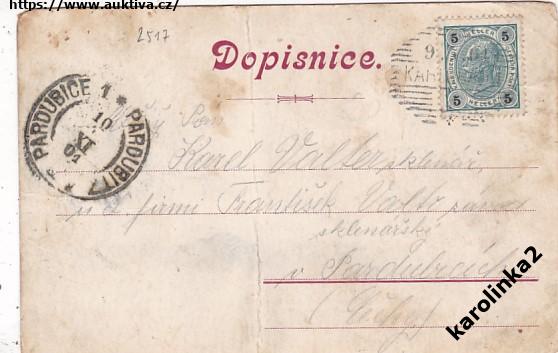 https://www.auktiva.cz/
2517
Dopisnice.
5 5
5 5
HELLER
9
KAR
PARDUBICE 1
10
XI
01
PARDUBI
Pan
Karel Valter, sklenář,
u firmi František Valtr, závod
sklenářský
v Pardubicích
(Čechy)
karolinka2